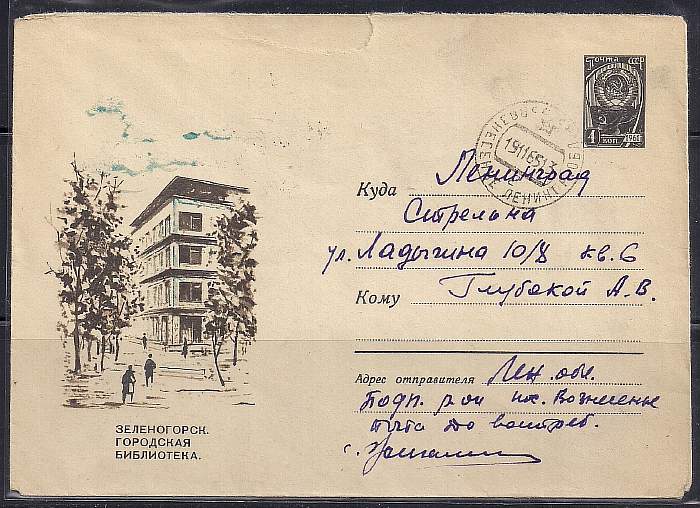 Почта СССР
4 коп. 1961
ВОЗНЕСЕНЬЕ ЛЕНИНГР. ОБЛ.
191165
Куда Ленинград
Стрельна
ул. Ладыгина 10/8 кв. 6
Кому Глубокой А.В.
Адрес отправителя Лен. обл.
Подп. р-он пос. Вознесенье
почта до востреб.
г.
ЗЕЛЕНОГОРСК.
ГОРОДСКАЯ
БИБЛИОТЕКА.